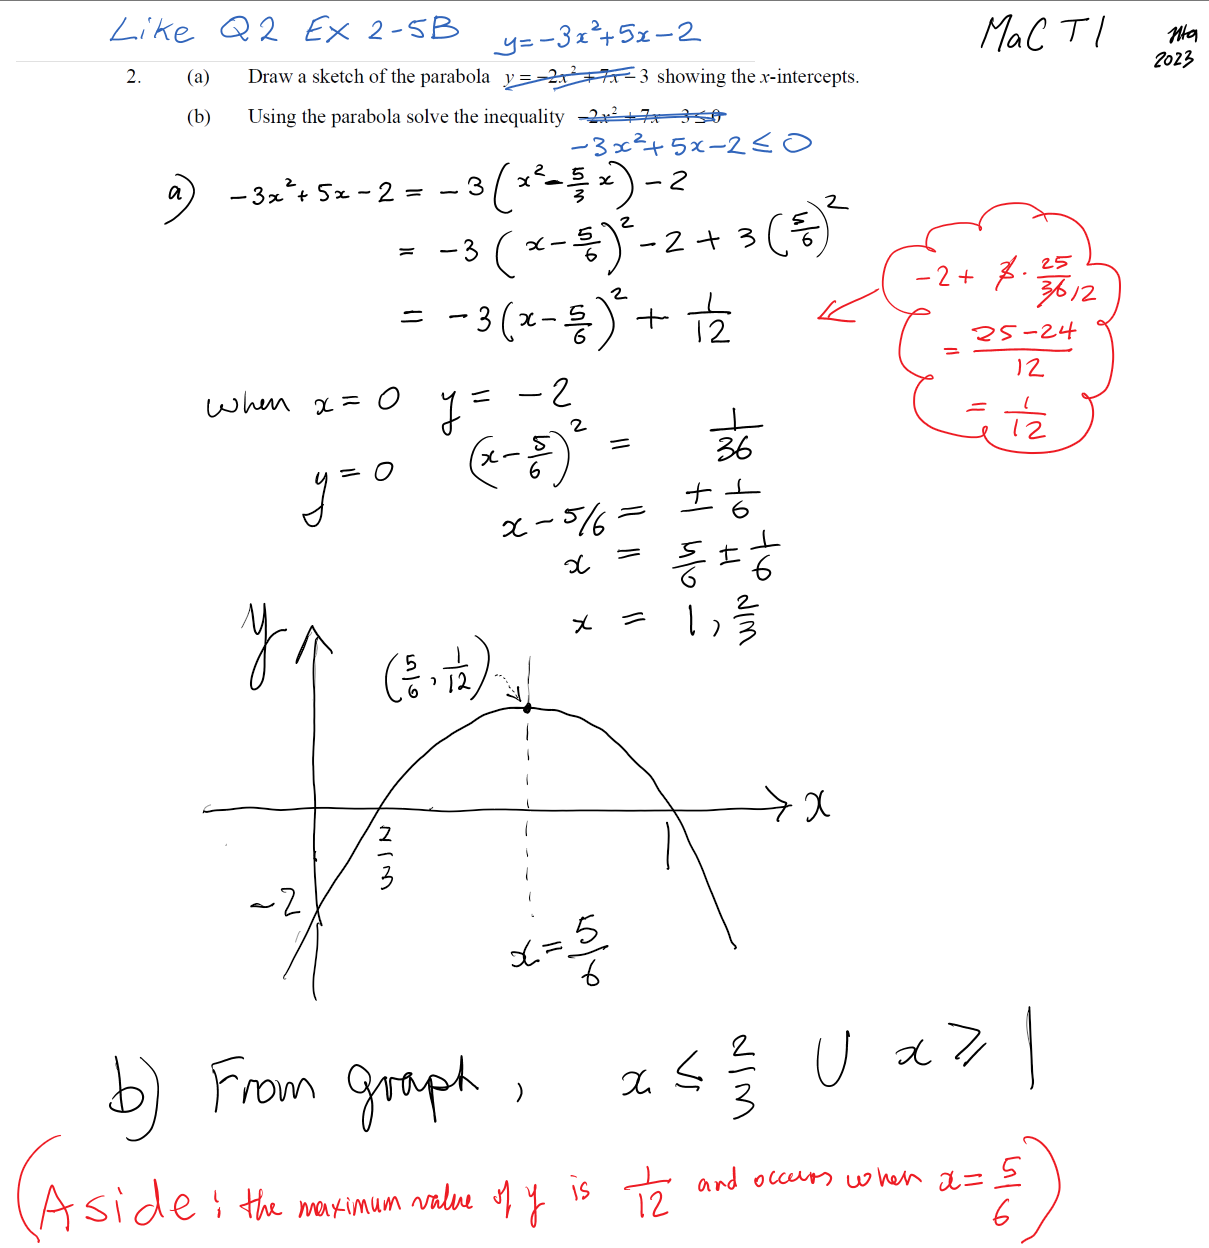 Like Q2 Ex 2-5B y = -3x² + 5x - 2 MaC T1
2023
2. (a) Draw a sketch of the parabola y = -2x² + 7x - 3 showing the x-intercepts.
(b) Using the parabola solve the inequality -2x² + 7x - 3 ≤ 0
-3x² + 5x - 2 ≤ 0
a) -3x² + 5x - 2 = -3(x² - 5/3 x) - 2
= -3(x - 5/6)² - 2 + 3(5/6)²
= -3(x - 5/6)² + 1/12
-2 + 3 · 25/36 12
= 25-24/12
= 1/12
When x = 0 y = -2
y = 0 (x - 5/6)² = 1/36
x - 5/6 = ± 1/6
x = 5/6 ± 1/6
x = 1, 2/3
y
(5/6, 1/12)
x
2/3
1
-2
x = 5/6
b) From graph, x ≤ 2/3 ∪ x ≥ 1
(Aside: the maximum value of y is 1/12 and occurs when x = 5/6)